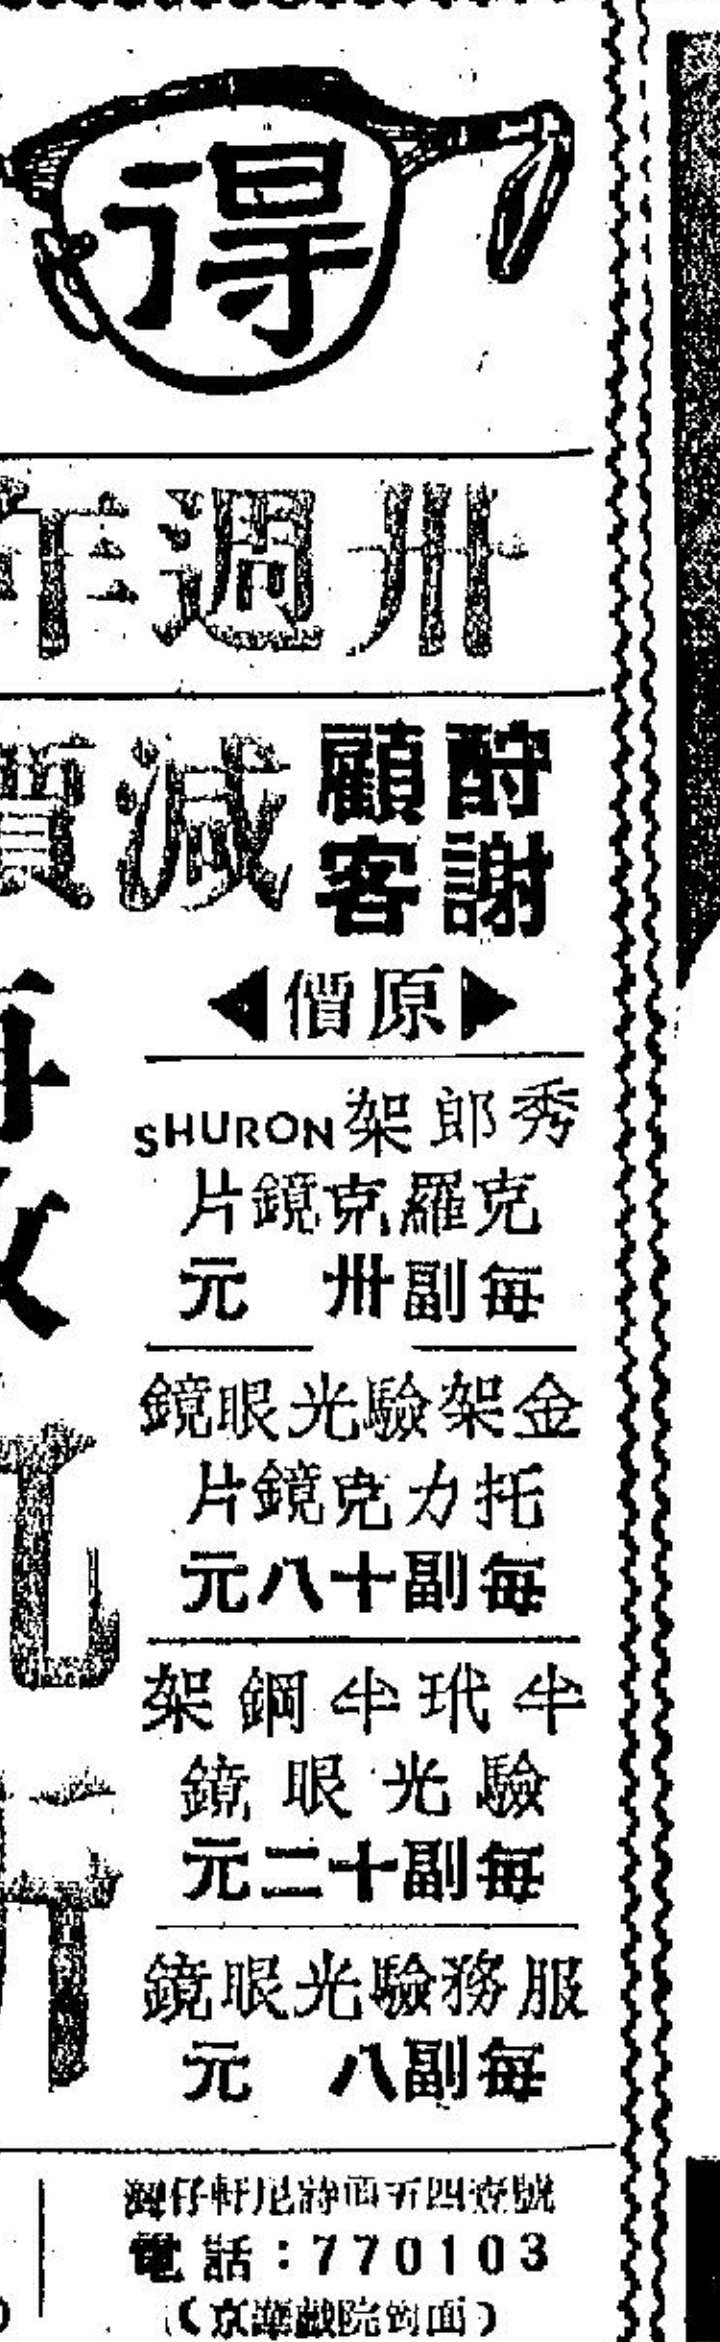 得
卅週年
酧謝
顧客
減價
原價
秀郎架SHURON
克羅克鏡片
每副卅元
金架驗光眼鏡
托力克鏡片
每副十八元
半玳半鋼架
驗光眼鏡
每副十二元
服務驗光眼鏡
每副八元
灣仔軒尼詩道五四壹號
電話：770103
（京華戲院對面）